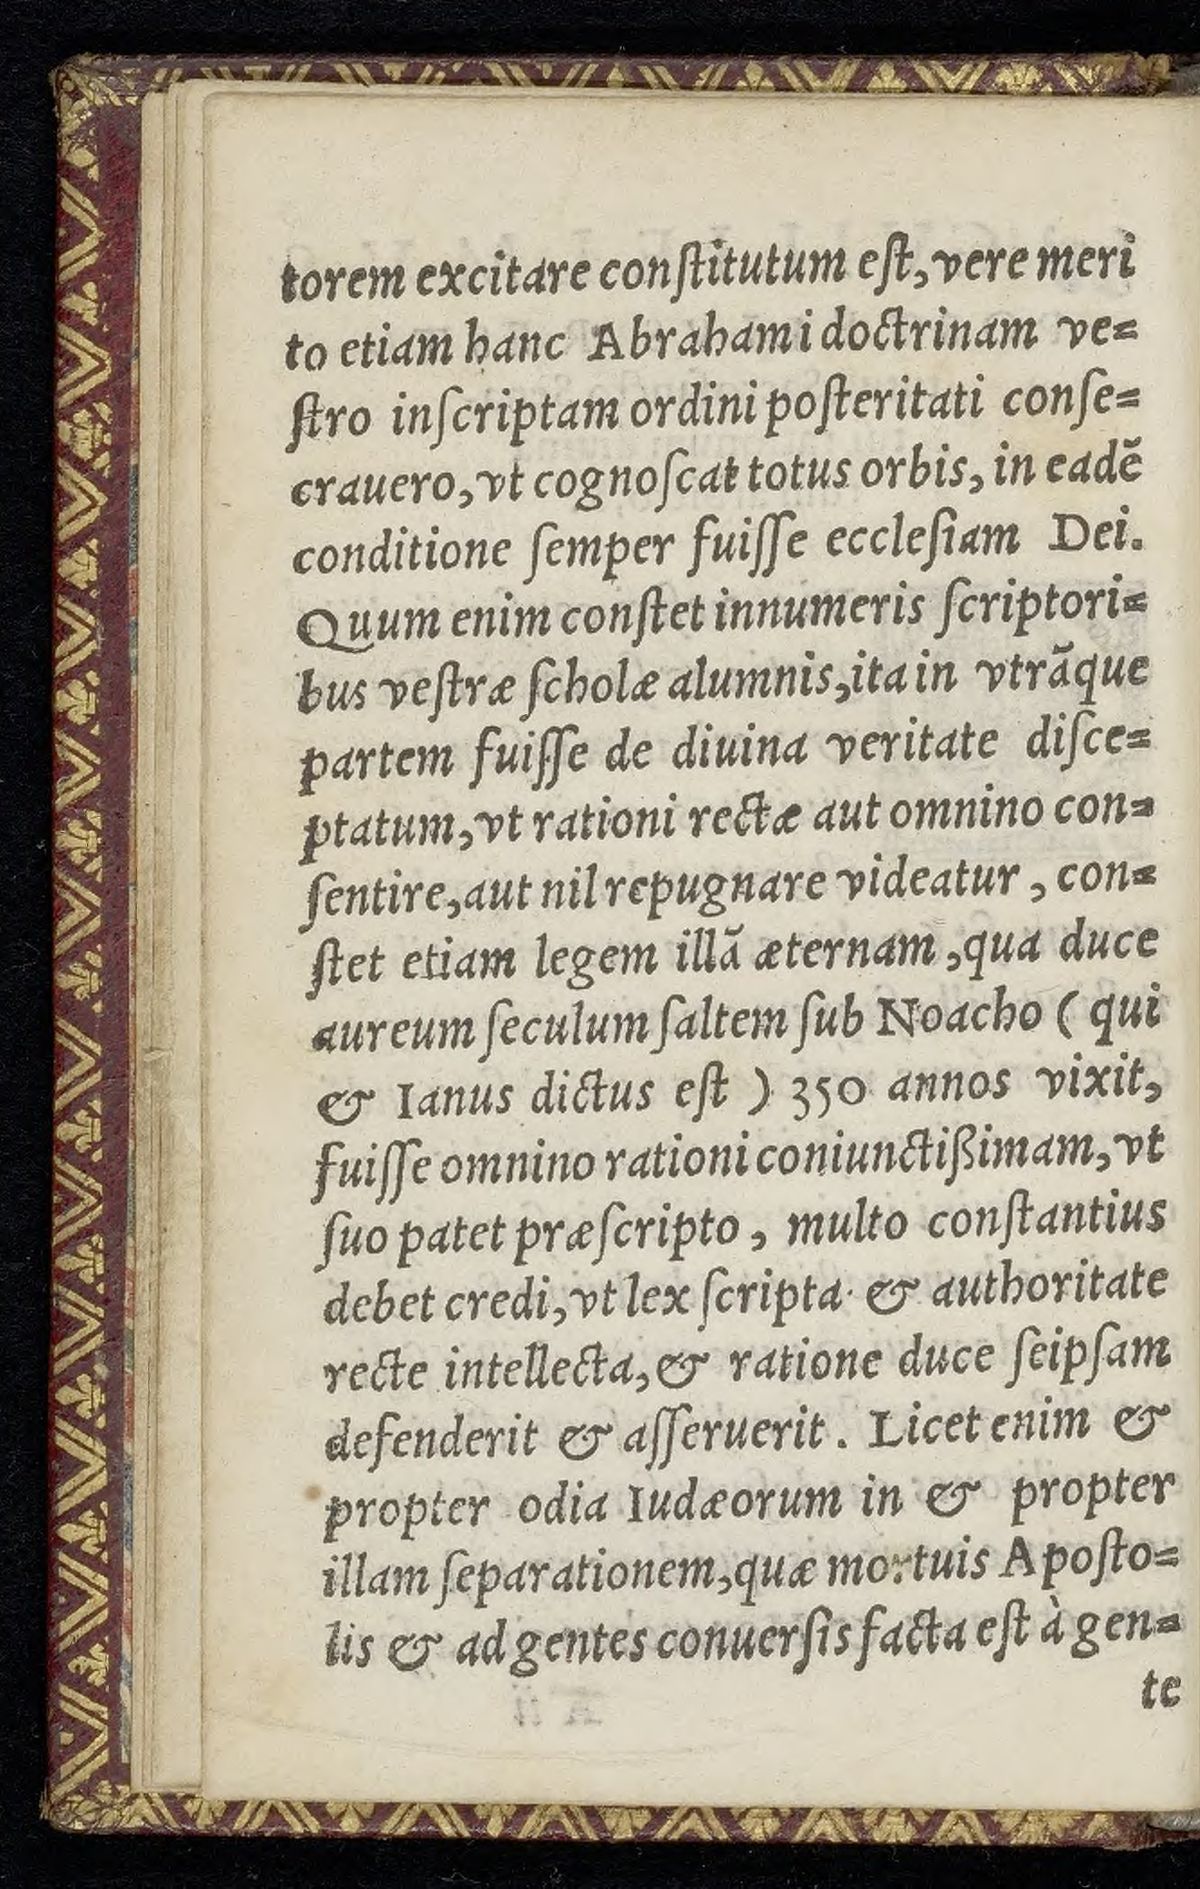 torem excitare conſtitutum eſt, vere meri
to etiam hanc Abrahami doctrinam ve=
ſtro inſcriptam ordini poſteritati conſe=
crauero, vt cognoſcat totus orbis, in eadē
conditione ſemper fuiſſe eccleſiam Dei.
Quum enim conſtet innumeris ſcriptori=
bus veſtræ ſcholæ alumnis, ita in vtrāque
partem fuiſſe de diuina veritate diſce=
ptatum, vt rationi rectæ aut omnino con=
ſentire, aut nil repugnare videatur, con=
ſtet etiam legem illā æternam, qua duce
aureum ſeculum ſaltem ſub Noacho ( qui
& Ianus dictus eſt ) 350 annos vixit,
fuiſſe omnino rationi coniunctißimam, vt
ſuo patet præſcripto, multo conſtantius
debet credi, vt lex ſcripta & authoritate
recte intellecta, & ratione duce ſeipſam
defenderit & aſſeruerit. Licet enim &
propter odia Iudæorum in & propter
illam ſeparationem, quæ mortuis Apoſto=
lis & ad gentes conuerſis facta eſt à gen=
te